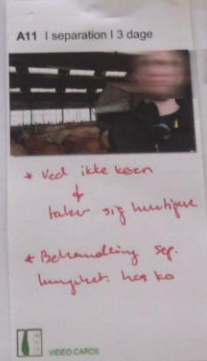 A11 I separation I 3 dage
* Ved ikke koen
↓
taber sig hurtigere
* Behandling sep.
hos ko
VIDEO CARDS